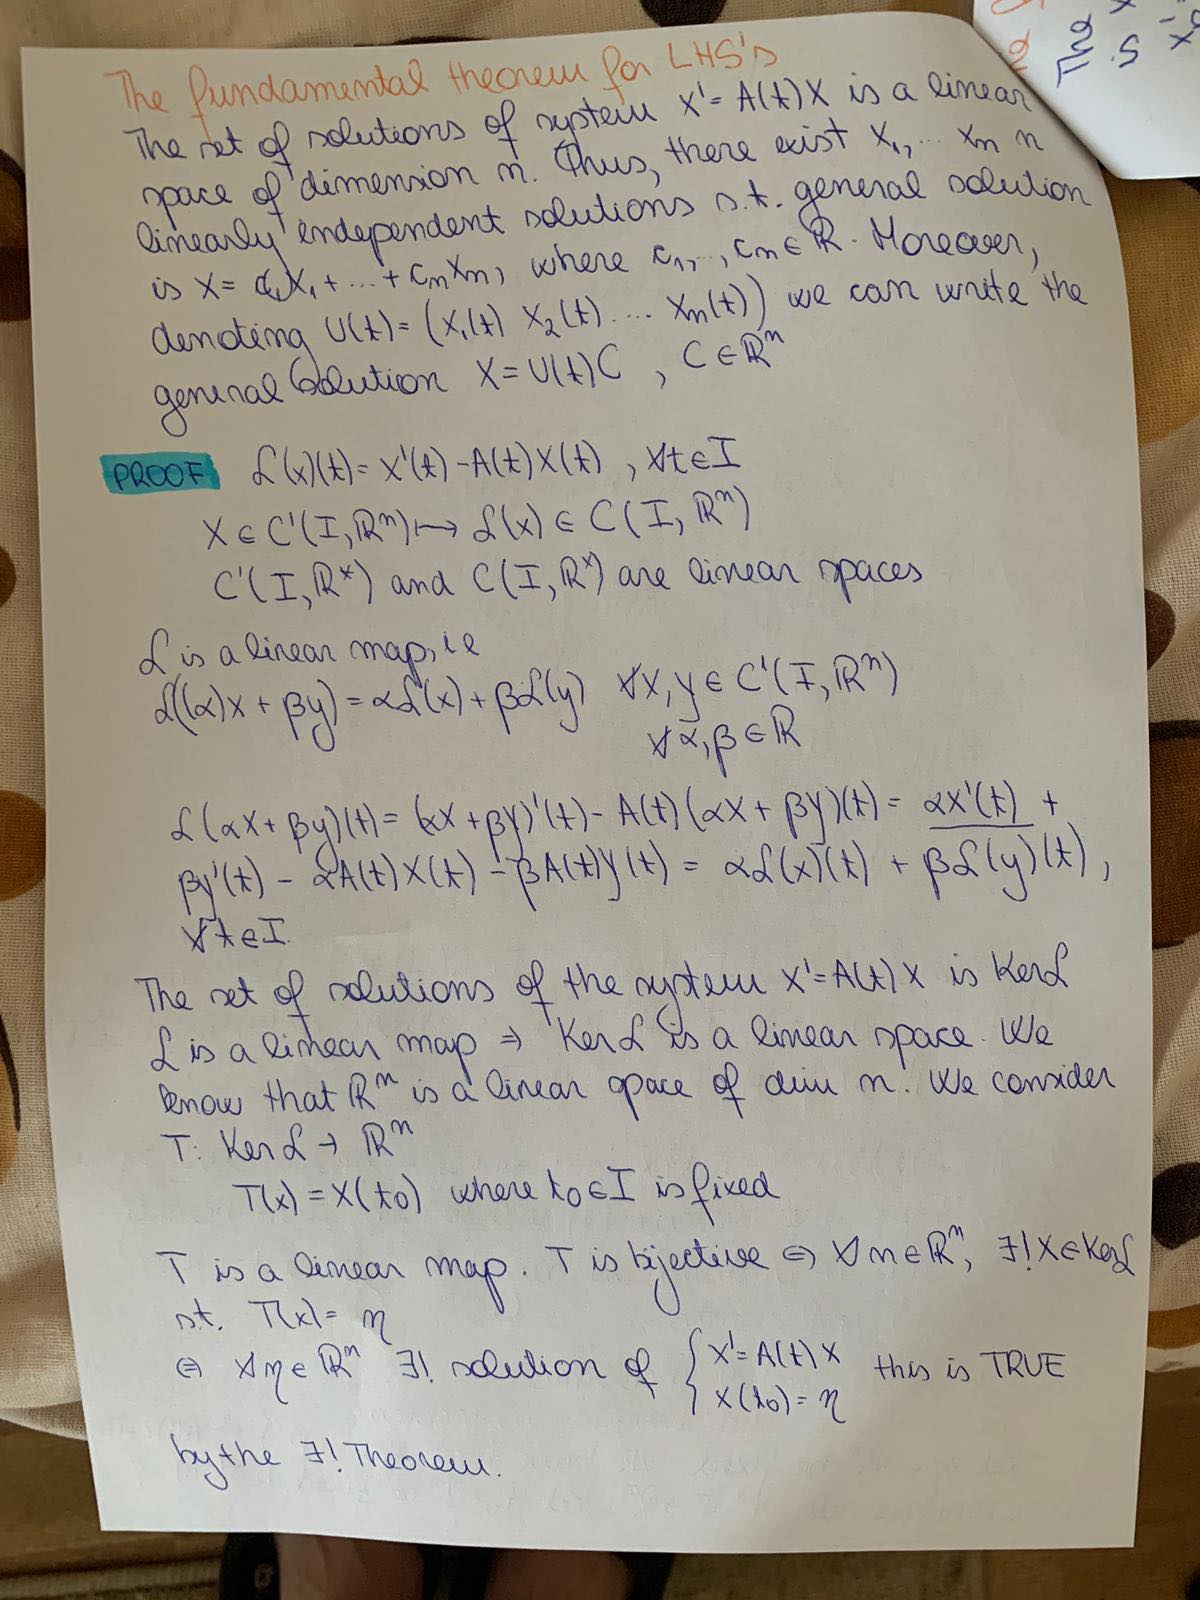 The fundamental theorem for LHS's
The set of solutions of system X' = A(t)X is a linear
space of dimension n. Thus, there exist X₁, ... Xn n
linearly independent solutions s.t. general solution
is X = c₁X₁ + ... + cnXn, where c₁, .., cn ∈ ℝ. Moreover,
denoting U(t) = (X₁(t) X₂(t) .... Xn(t)) we can write the
general solution X = U(t)C , C ∈ ℝⁿ
PROOF ℒ(x)(t) = X'(t) - A(t)X(t) , ∀t ∈ I
X ∈ C'(I, ℝⁿ) ↦ ℒ(x) ∈ C(I, ℝⁿ)
C'(I, ℝ*) and C(I, ℝ*) are linear spaces
ℒ is a linear map, ie
ℒ((α)x + βy) = αℒ(x) + βℒ(y) ∀X, y ∈ C'(I, ℝⁿ)
∀α, β ∈ ℝ
ℒ(αX + βy)(t) = (αX + βy)'(t) - A(t)(αX + βy)(t) = αX'(t) +
βy'(t) - αA(t)X(t) - βA(t)y(t) = αℒ(x)(t) + βℒ(y)(t),
∀t ∈ I.
The set of solutions of the system X' = A(t)X is Kerℒ
ℒ is a linear map ⇒ Kerℒ is a linear space. We
know that ℝⁿ is a linear space of dim n. We consider
T: Kerℒ → ℝⁿ
T(x) = X(t₀) where t₀ ∈ I is fixed
T is a linear map. T is bijective ⇔ ∀η ∈ ℝⁿ, ∃! X ∈ Kerℒ
s.t. T(x) = η
⇔ ∀η ∈ ℝⁿ ∃! solution of { X' = A(t)X this is TRUE
X(t₀) = η
by the ∃! Theorem.